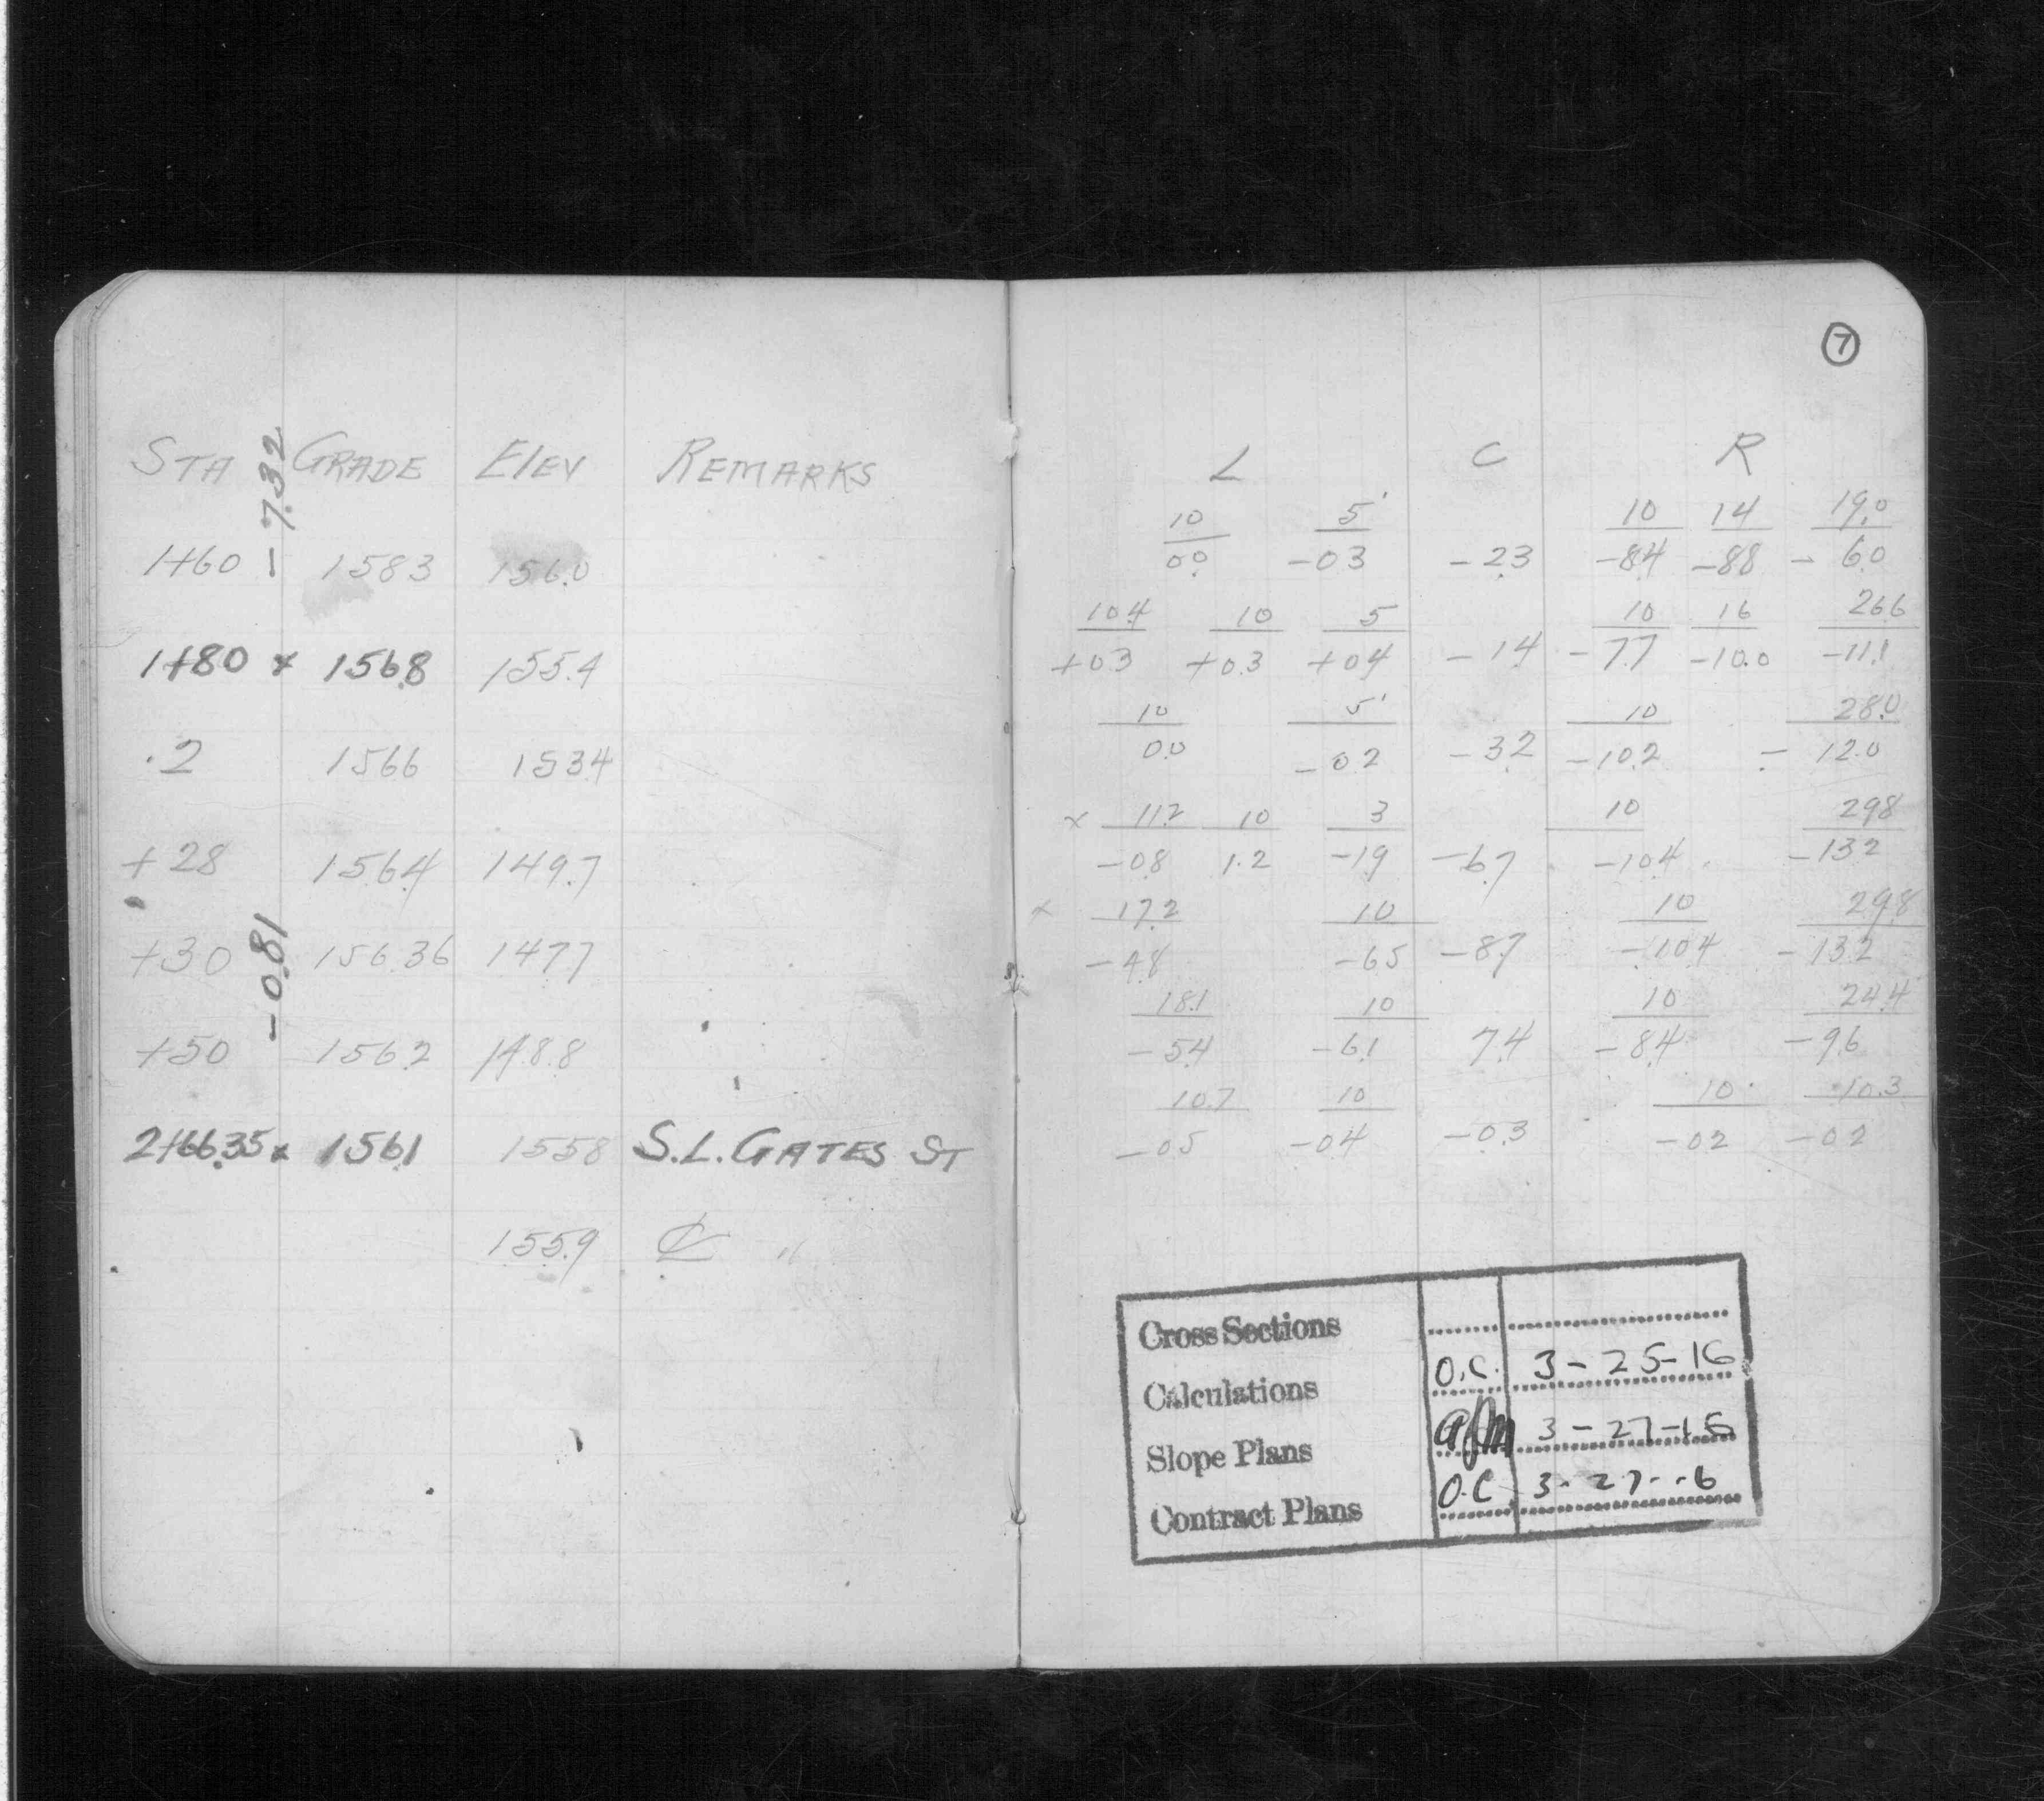 STA GRADE ELEV REMARKS
- 7.32
1+60 158.3 156.0
1+80 x 156.8 155.4
.2 156.6 153.4
+28 156.4 149.7
- 0.81
+30 156.36 147.7
+50 156.2 148.8
2+66.35 x 156.1 155.8 S.L. GATES ST
155.9 ℄ "
7
L C R
10 5' 10 14 19.0
0.0 -0.3 -2.3 -8.4 -8.8 - 6.0
10.4 10 5 10 16 26.6
+0.3 +0.3 +0.4 -1.4 -7.7 -10.0 -11.1
10 5' 10 28.0
0.0 -0.2 -3.2 -10.2 - 12.0
x 11.2 10 3 10 29.8
-0.8 1.2 -1.9 -6.7 -10.4 -13.2
x 17.2 10 10 29.8
-4.8 -6.5 -8.7 -10.4 -13.2
18.1 10 10 24.4
-5.4 -6.1 7.4 -8.4 -9.6
10.7 10 10 10.3
-0.5 -0.4 -0.3 -0.2 -0.2
Cross Sections
Calculations O.C. 3-25-16
Slope Plans 3-27-16
Contract Plans O.C 3-27-16